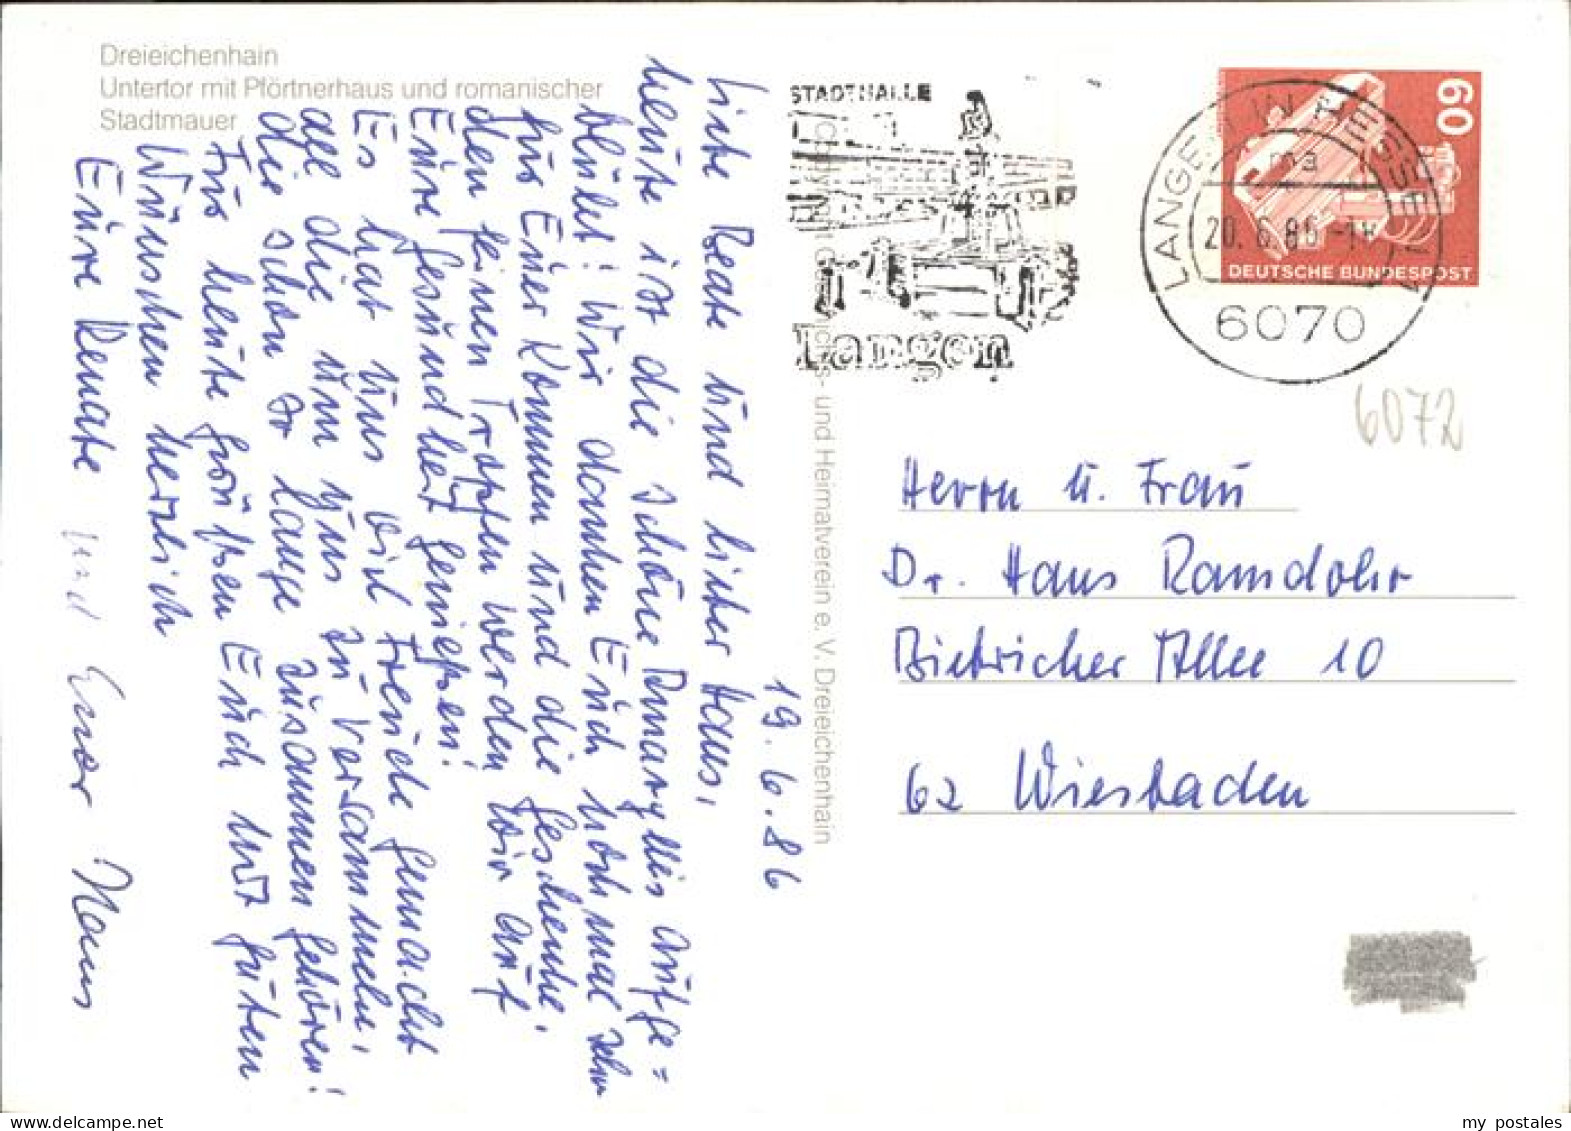 Dreieichenhain
Untertor mit Pförtnerhaus und romanischer
Stadtmauer
19.6.86
Liebe Beate und lieber Hans,
heute ist die schöne Amaryllis aufge=
blüht! Wir danken Euch nochmal sehr
für Euer Kommen und die Geschenke,
den feinen Tropfen werden wir auf
Eure Gesundheit genießen!
Es hat uns viel Freude gemacht
all die um uns zu versammeln,
die schon so lange zusammen gehören!
Für heute grüßen Euch mit guten
Wünschen herzlich
Eure Renate und Euer Hans
Copyright Geschichts- und Heimatverein e. V. Dreieichenhain
STADTHALLE
Langen
LANGEN IN HESSEN 1
ma
20. 6. 86
6070
60
DEUTSCHE BUNDESPOST
6072
Herrn u. Frau
Dr. Hans Ramdohr
Biebricher Allee 10
62 Wiesbaden
www.delcampe.net
my_postales